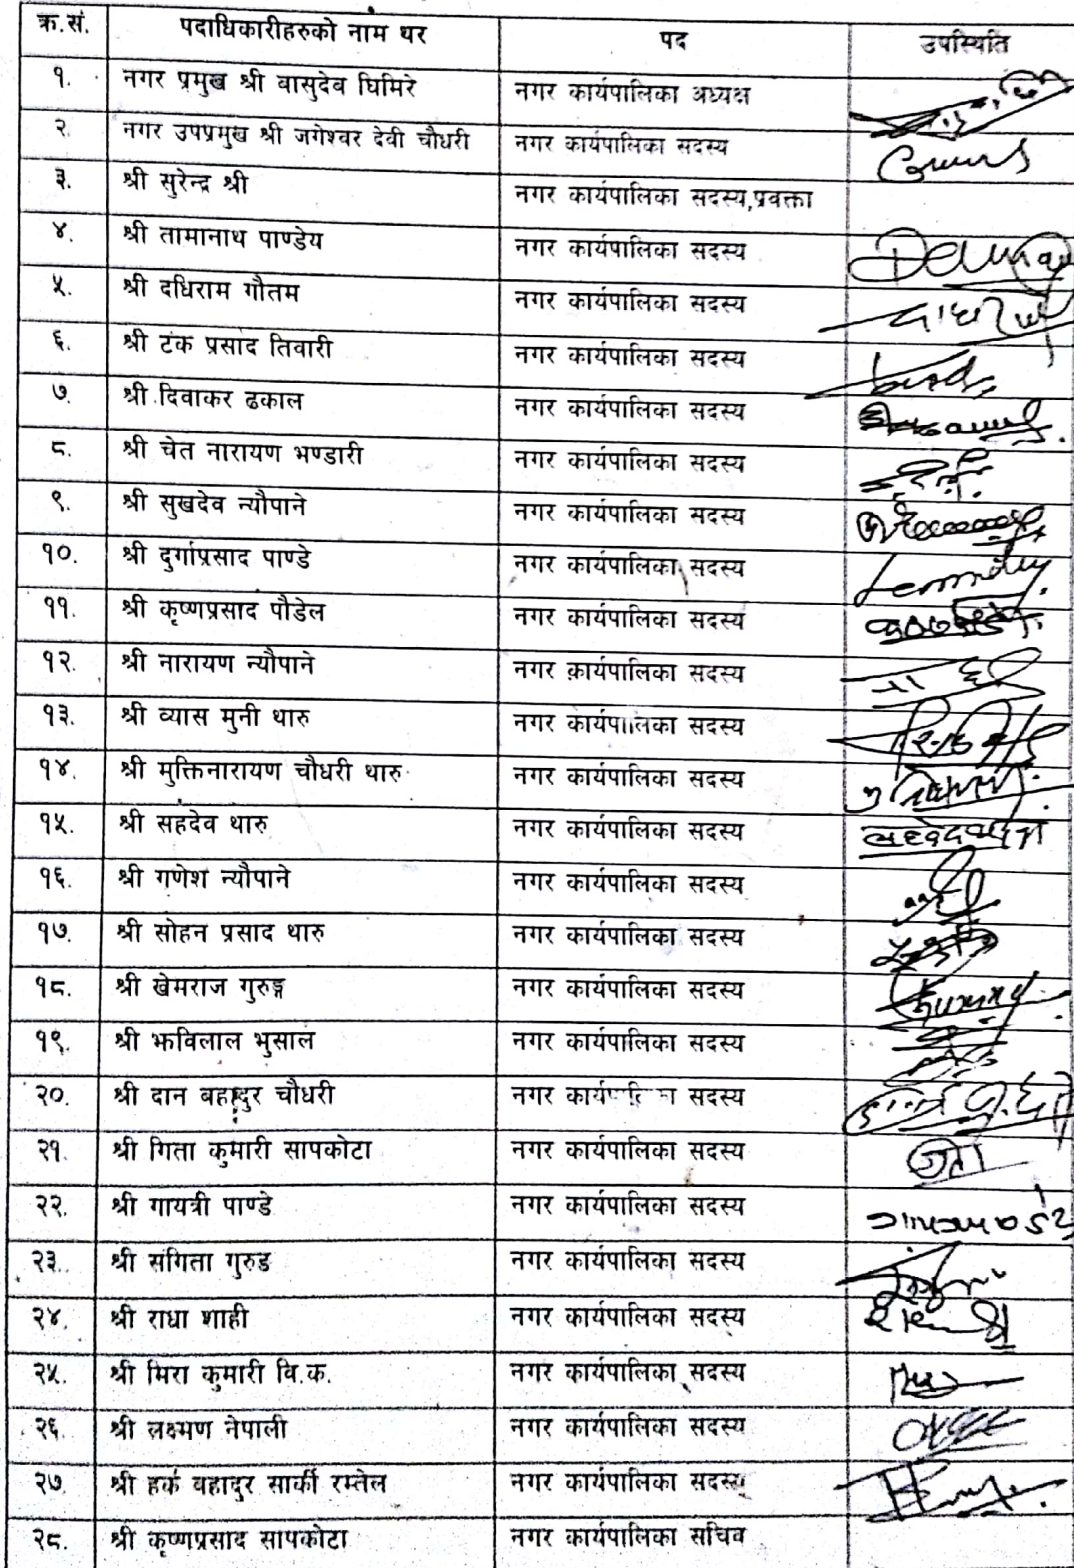 क्र.सं. पदाधिकारीहरुको नाम थर पद उपस्थिति
१. नगर प्रमुख श्री वासुदेव घिमिरे नगर कार्यपालिका अध्यक्ष
२. नगर उपप्रमुख श्री जगेश्वर देवी चौधरी नगर कार्यपालिका सदस्य
३. श्री सुरेन्द्र श्री नगर कार्यपालिका सदस्य,प्रवक्ता
४. श्री तामानाथ पाण्डेय नगर कार्यपालिका सदस्य
५. श्री दधिराम गौतम नगर कार्यपालिका सदस्य
६. श्री टंक प्रसाद तिवारी नगर कार्यपालिका सदस्य
७. श्री दिवाकर ढकाल नगर कार्यपालिका सदस्य
८. श्री चेत नारायण भण्डारी नगर कार्यपालिका सदस्य
९. श्री सुखदेव न्यौपाने नगर कार्यपालिका सदस्य
१०. श्री दुर्गाप्रसाद पाण्डे नगर कार्यपालिका सदस्य
११. श्री कृष्णप्रसाद पौडेल नगर कार्यपालिका सदस्य
१२. श्री नारायण न्यौपाने नगर कार्यपालिका सदस्य
१३. श्री व्यास मुनी थारु नगर कार्यपालिका सदस्य
१४. श्री मुक्तिनारायण चौधरी थारु नगर कार्यपालिका सदस्य
१५. श्री सहदेव थारु नगर कार्यपालिका सदस्य
१६. श्री गणेश न्यौपाने नगर कार्यपालिका सदस्य
१७. श्री सोहन प्रसाद थारु नगर कार्यपालिका सदस्य
१८. श्री खेमराज गुरुङ्ग नगर कार्यपालिका सदस्य
१९. श्री झविलाल भुसाल नगर कार्यपालिका सदस्य
२०. श्री दान बहादुर चौधरी नगर कार्यपालिका सदस्य
२१. श्री गिता कुमारी सापकोटा नगर कार्यपालिका सदस्य
२२. श्री गायत्री पाण्डे नगर कार्यपालिका सदस्य
२३. श्री संगिता गुरुङ नगर कार्यपालिका सदस्य
२४. श्री राधा शाही नगर कार्यपालिका सदस्य
२५. श्री मिरा कुमारी वि.क. नगर कार्यपालिका सदस्य
२६. श्री लक्ष्मण नेपाली नगर कार्यपालिका सदस्य
२७. श्री हर्क बहादुर सार्की रम्तेल नगर कार्यपालिका सदस्य
२८. श्री कृष्णप्रसाद सापकोटा नगर कार्यपालिका सचिव